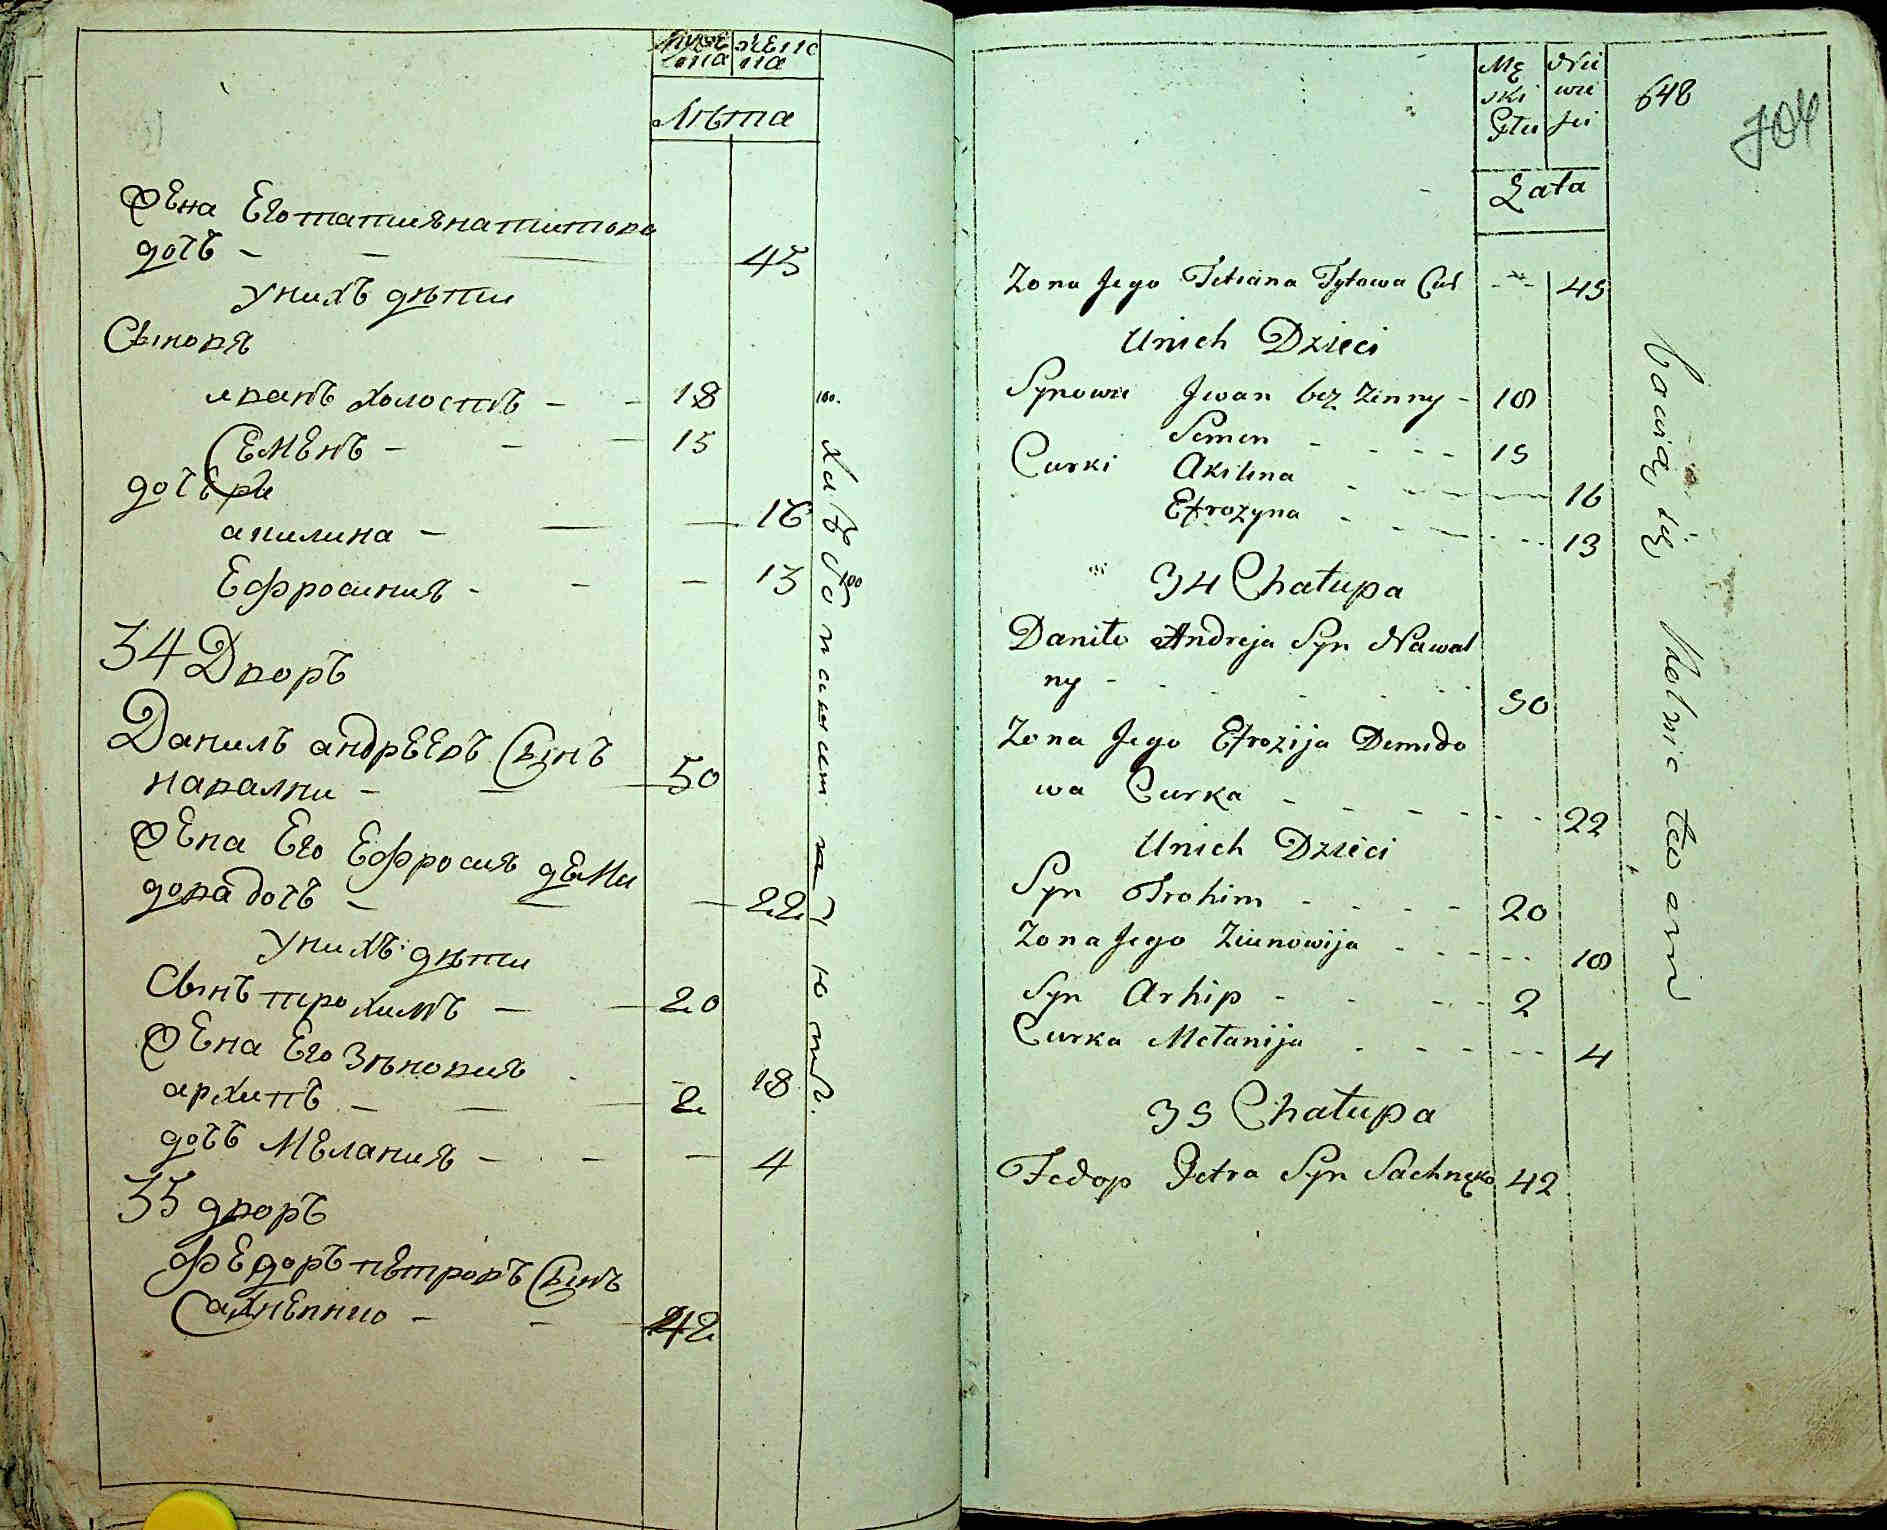 муже жено
ска на
Лѣта
жена Его татиянатитова
дочъ - - 45
унихъ дѣти
Сынова
иванъ холостъ - - 18
Семенъ - - 15
дочери
акилина - - 16
Ефросиния - - 13
34 Дворъ
Данилъ андреевъ Сынъ
навални - - 50
жена Его Ефросия деми
довадочъ - - 22
унихъ дѣти
Сынъ трохимъ - - 20
жена Его Зѣновия - 18
архипъ - - 2
дочъ Мелания - - 4
35 дворъ
федоръ петровъ Сынъ
Сахненко - - 42
хлѣбо пашествуютъ.
Mę Nie
ski wie
Płci sci
Lata
648
704
Zona Jego Tetiana Tytowa Cur - - 45
Unich Dzieci
Synowie Jwan bez Zenny - 18
Semen - - - 15
Curki Akilina - - - 16
Efrozyna - - - 13
34 Chałupa
Daniło Andreja Syn Nawal
ny - - - 50
Zona Jego Efrozija Demido
wa Curka - - - 22
Unich Dzieci
Syn Trohim - - - 20
Zona Jego Zienowija - - - 18
Syn Arhip - - - 2
Curka Mełanija - - - 4
35 Chałupa
Fedop Petra Syn Sachnęko 42
bawią się Rolnic twami